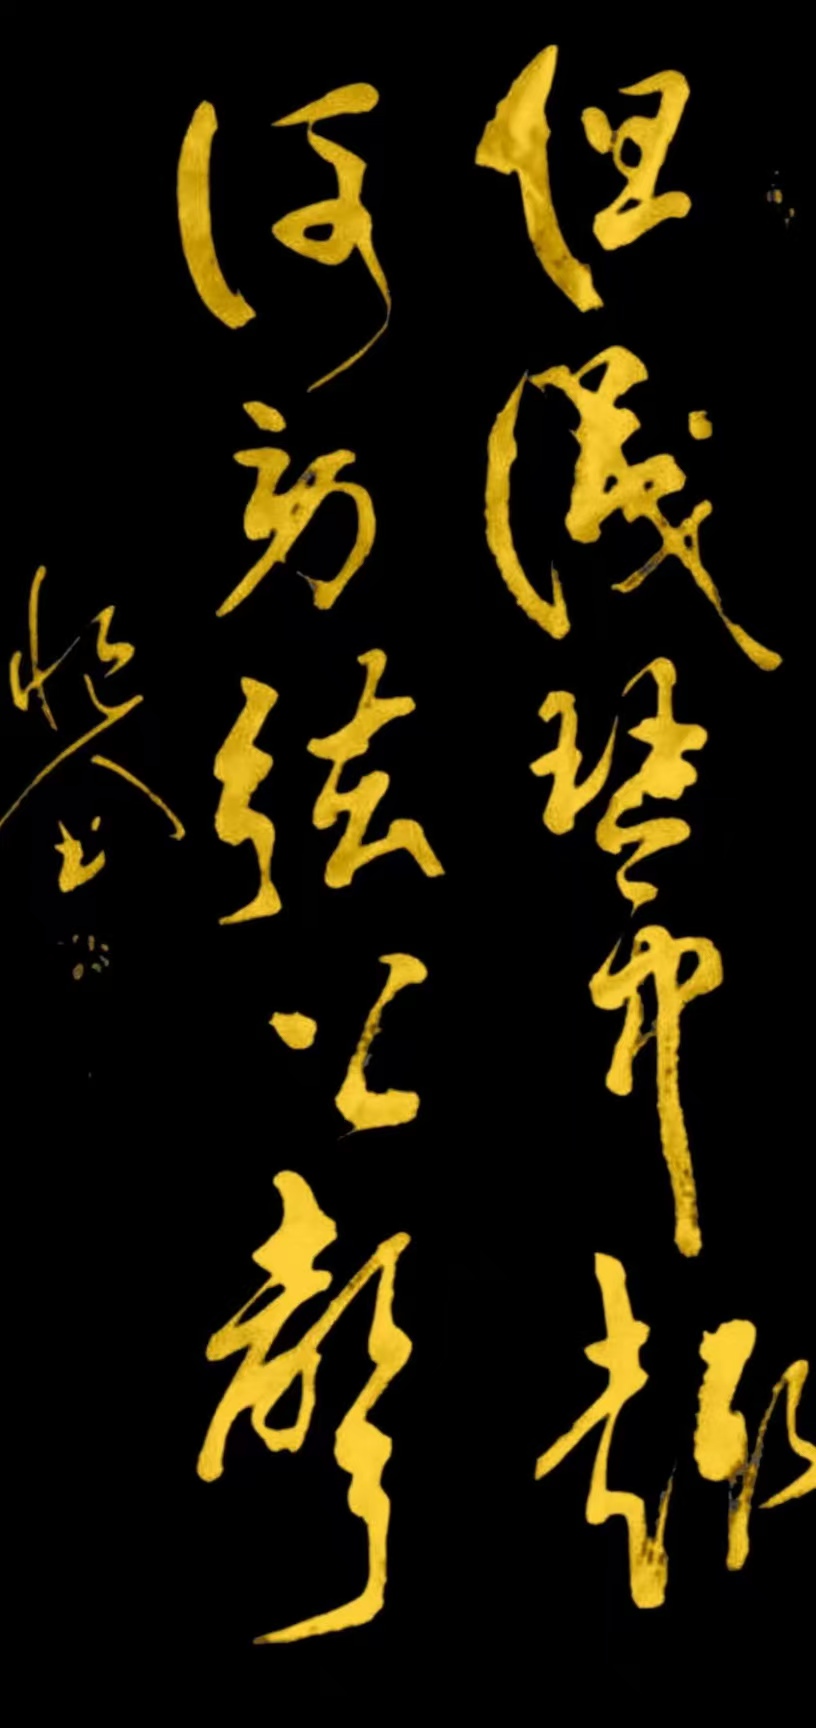 但識琴中趣
何勞弦上聲